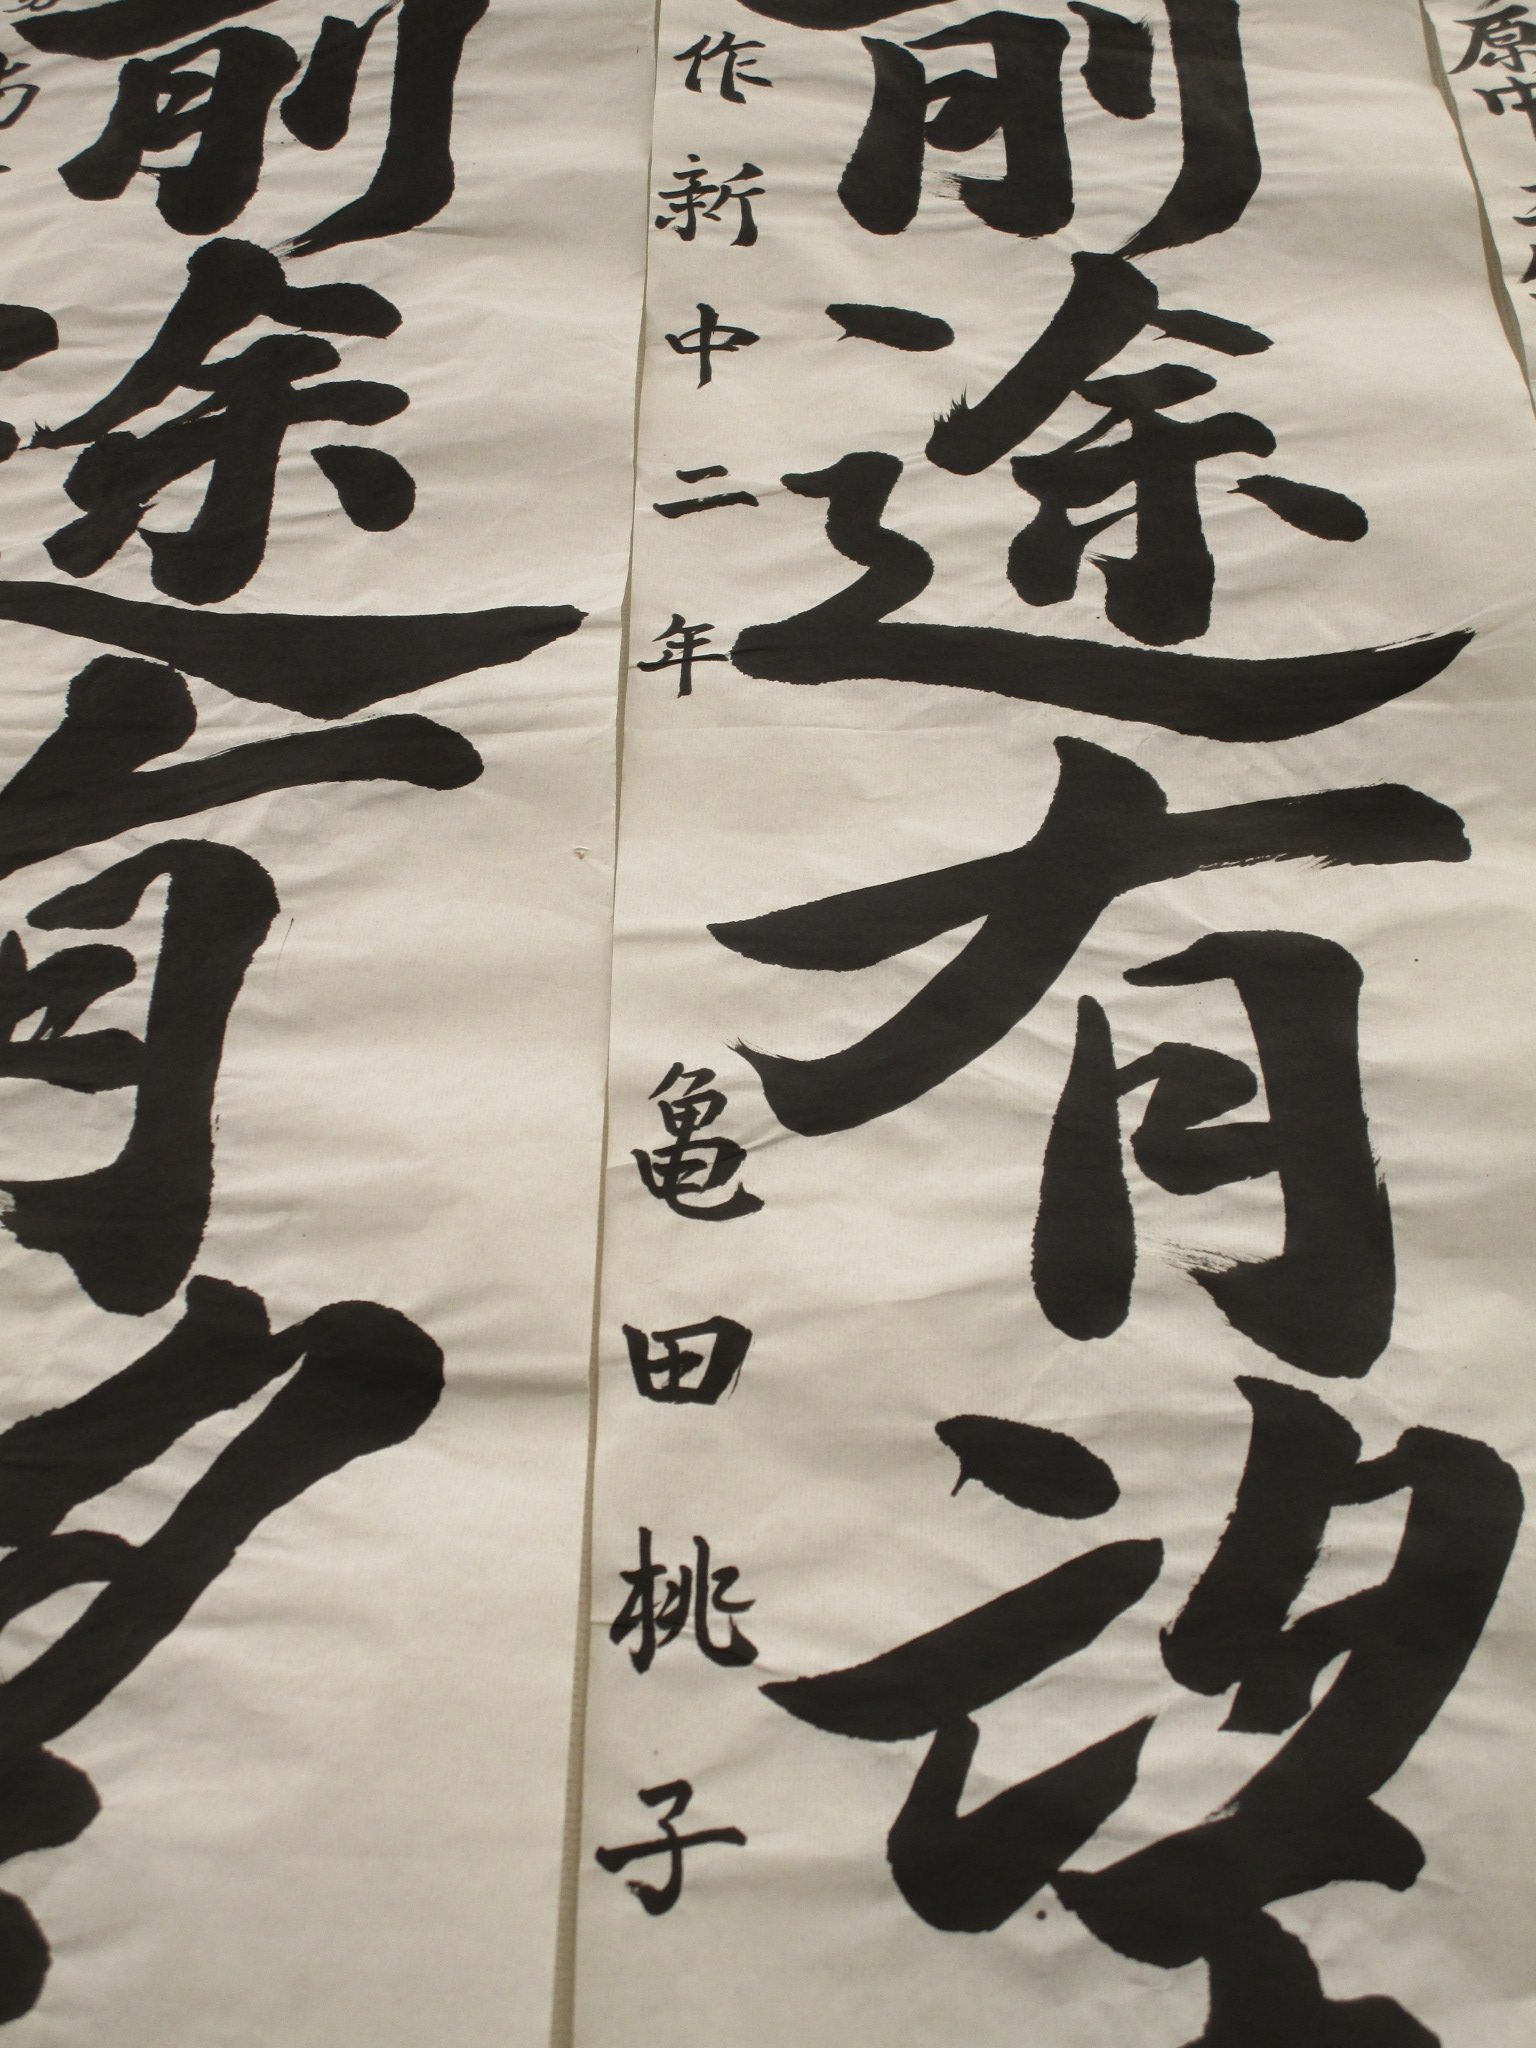 原中
前途有望
作新中二年 亀田桃子
前途有望